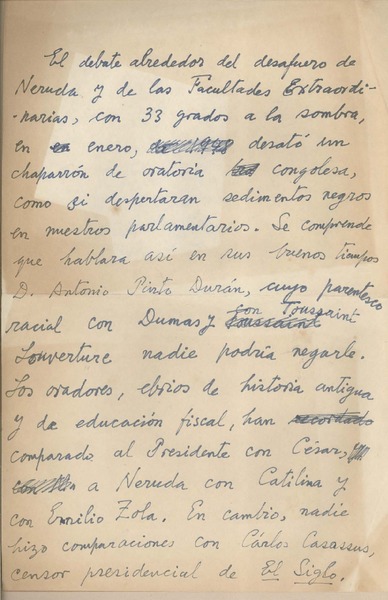 El debate alrededor del desafuero de
Neruda y de las Facultades Extraordi-
narias, con 33 grados a la sombra,
en enero, desató un
chaparrón de oratoria congolesa,
como si despertaran sedimentos negros
en nuestros parlamentarios. Se comprende
que hablara así en sus buenos tiempos
D. Antonio Pinto Durán, cuyo parentesco
racial con Dumas y con Toussaint
Louverture nadie podría negarle.
Los oradores, ebrios de historia antigua
y de educación fiscal, han
comparado al Presidente con César,
a Neruda con Catilina y
con Emilio Zola. En cambio, nadie
hizo comparaciones con Cárlos Casassus,
censor presidencial de El Siglo.